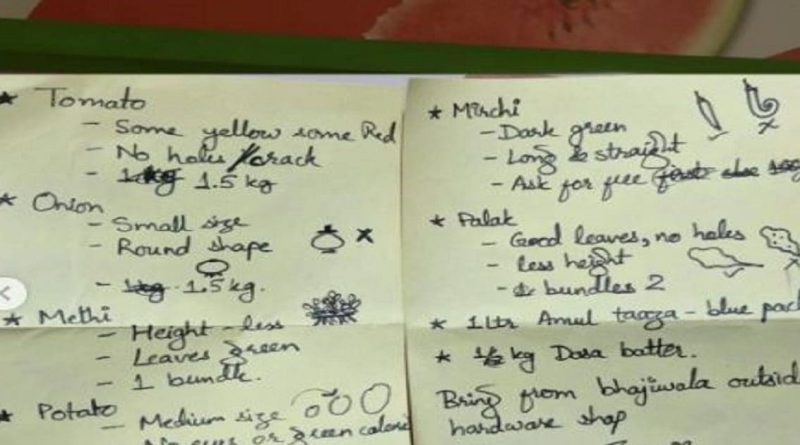 ★ Tomato
- Some yellow some Red
- No holes / crack
- 1kg 1.5 kg
★ Onion
- Small size
- Round shape
- 1kg 1.5 kg.
★ Methi
- Height - less
- Leaves green
- 1 bundle.
★ Potato
- Medium size
- No eyes or green
★ Mirchi
- Dark green
- Long & straight
- Ask for free
★ Palak
- Good leaves, no holes
- less height
- bundles 2
★ 1 ltr Amul taaza - blue
★ 1/2 kg Dosa batter.
Bring from bhajiwala
hardware shop